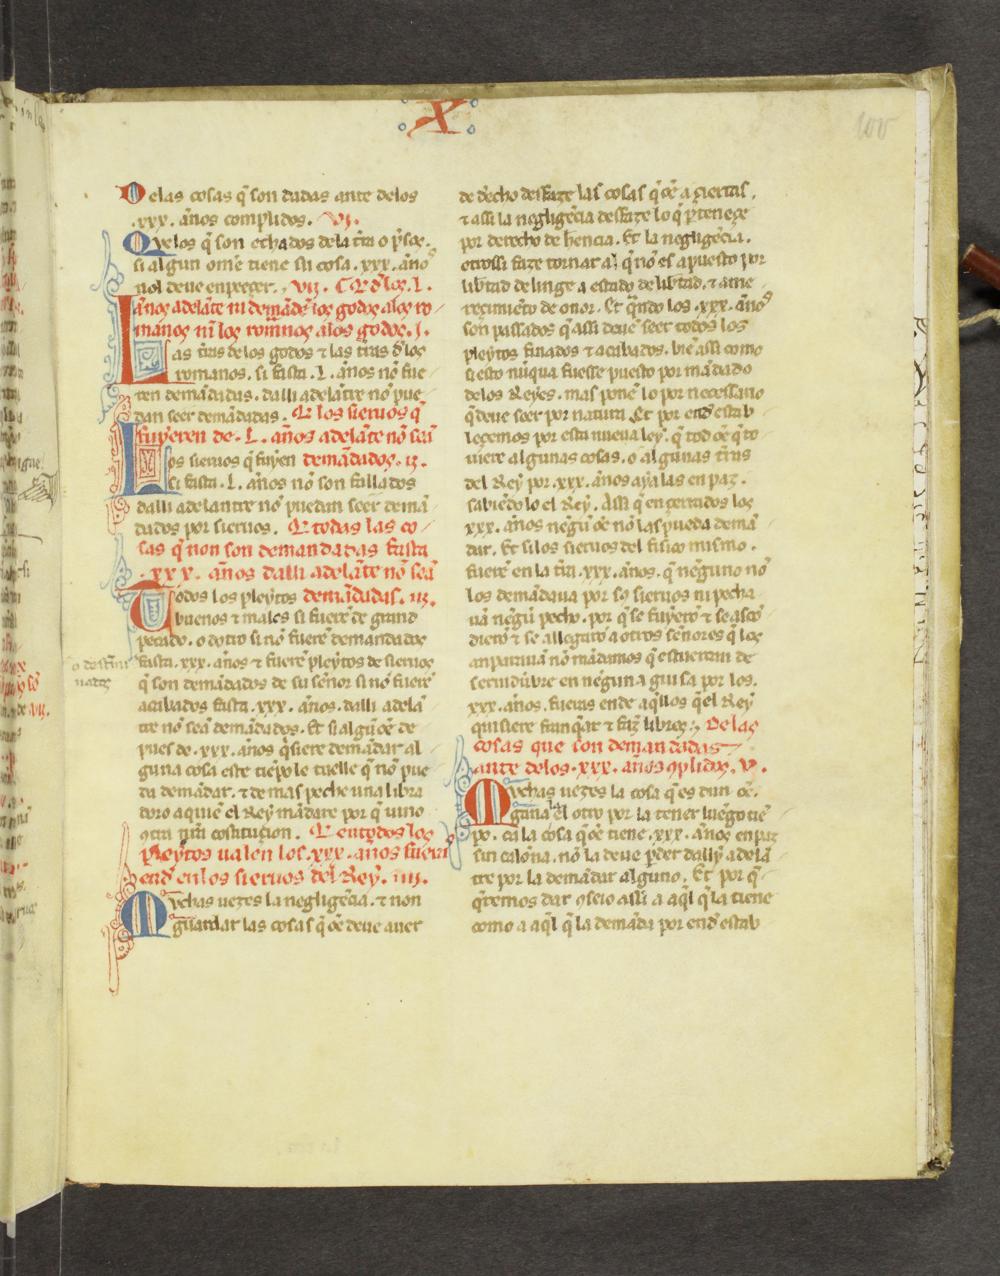 X
100
De las cosas q̃ son dadas ante delos
.xxx. años complidos. .vj.
Qvelos q̃ son echados dela tr̃a o p̃sos.
si algun om̃e tiene su cosa .xxx. año
nol deue enpeçer.
años adelãte ni demãdẽ los godos alos ro
manos ni los romanos alos godos. j.
Las tr̃as delos godos ⁊ las tr̃as d̃los
romanos. si fasta .L. años nõ fue
ren demãdadas. dalli adelãtre nõ pue
dan seer demãdadas. Q̃ los sieruos q̃
fuyeren de .L. años adelãte nõ seã
Los sieruos q̃ fuyen demãdados. ij.
si fasta .L. años nõ son fallados
dalli adelantre nõ puedan seer demã
dados por sieruos. Q̃ todas las co
sas q̃ non son demandadas fasta
.xxx. años dalli adelãte nõ seã
Todos los pleytos demãdadas. iij.
buenos ⁊ malos si fuerẽ de grand
pecado. o dotro si nõ fuerẽ demandados
fasta .xxx. años ⁊ fuerẽ pleytos de sieruos
q̃ son demãdados de su señor si nõ fuerẽ
acabados fasta .xxx. años. dalli adelã
tre nõ seã demãdados. Et si algũ oẽ de
pues de .xxx. años q̃siere demãdar al
guna cosa este tiẽpo le tuelle q̃ nõ pue
da demãdar. ⁊ demas peche una libra
doro aquiẽ el Rey mãdare por q̃ uino
cõtra nr̃a costituçion. Q̃ en todos los
pleytos ualen los .xxx. años fuera
end̃ en los sieruos del Rey. iiij.
Mvchas uezes la negligẽcia. ⁊ non
guardar las cosas q̃ oẽ deue auer
de derecho desfaze las cosas q̃ oẽ a çiertas.
⁊ assi la negligẽcia desfaze lo q̃ p̱teneçe
por derecho de herencia. Et la negligẽcia.
otrossi faze tornar al q̃ nõ es apuesto por
libtad de linge a estado de libtad. ⁊ a me
reçimiẽto de onor. Et q̃ndo los .xxx. años
son passados q̃ assi deuẽ seer todos los
pleytos finados ⁊ acabados. biẽ assi como
si esto nũqua fuesse puesto por mãdado
delos Reyes. mas ponẽ lo por necessario
q̃ deue seer por natura. Et por end̃ estab
leçemos por esta nueua ley. q̃ tod oẽ q̃ to
uiere algunas cosas. o algunas tr̃as
del Rey por .xxx. años aya las en paz.
sabiẽdo lo el Rey. Assi q̃ en çerrados los
xxx. años negũ oẽ nõ las pueda demã
dar. Et si los sieruos del fisco mismo.
fuerẽ en la tr̃a .xxx. años. q̃ neguno nõ
los demãdaua por so sieruos ni pecha
uã negũ pecho. por q̃ se fuyerõ ⁊ se ascõ
dierõ ⁊ se allegarõ a otros señores q̃ los
anparauã nõ mãdamos q̃ estuerzan de
seruidũbre en neguna guisa por los.
xxx. años. fueras ende aq̃llos q̃ el Rey
quisiere franq̃ar ⁊ faz̃ libres. De las
cosas que son demandadas
ante delos .xxx. años cõplidos. V.
Mvchas uezes la cosa q̃ es dun oẽ.
gana la el otro por la tener luẽgo tiẽ
po. ca la cosa q̃ oẽ tiene .xxx. años en paz
sin calõna. nõ la deue p̱der dally adelã
tre por la demãdar alguno. Et por q̃
q̃remos dar cõseio assi a aq̃l q̃ la tiene
como a aq̃l q̃ la demãda por end̃ estab